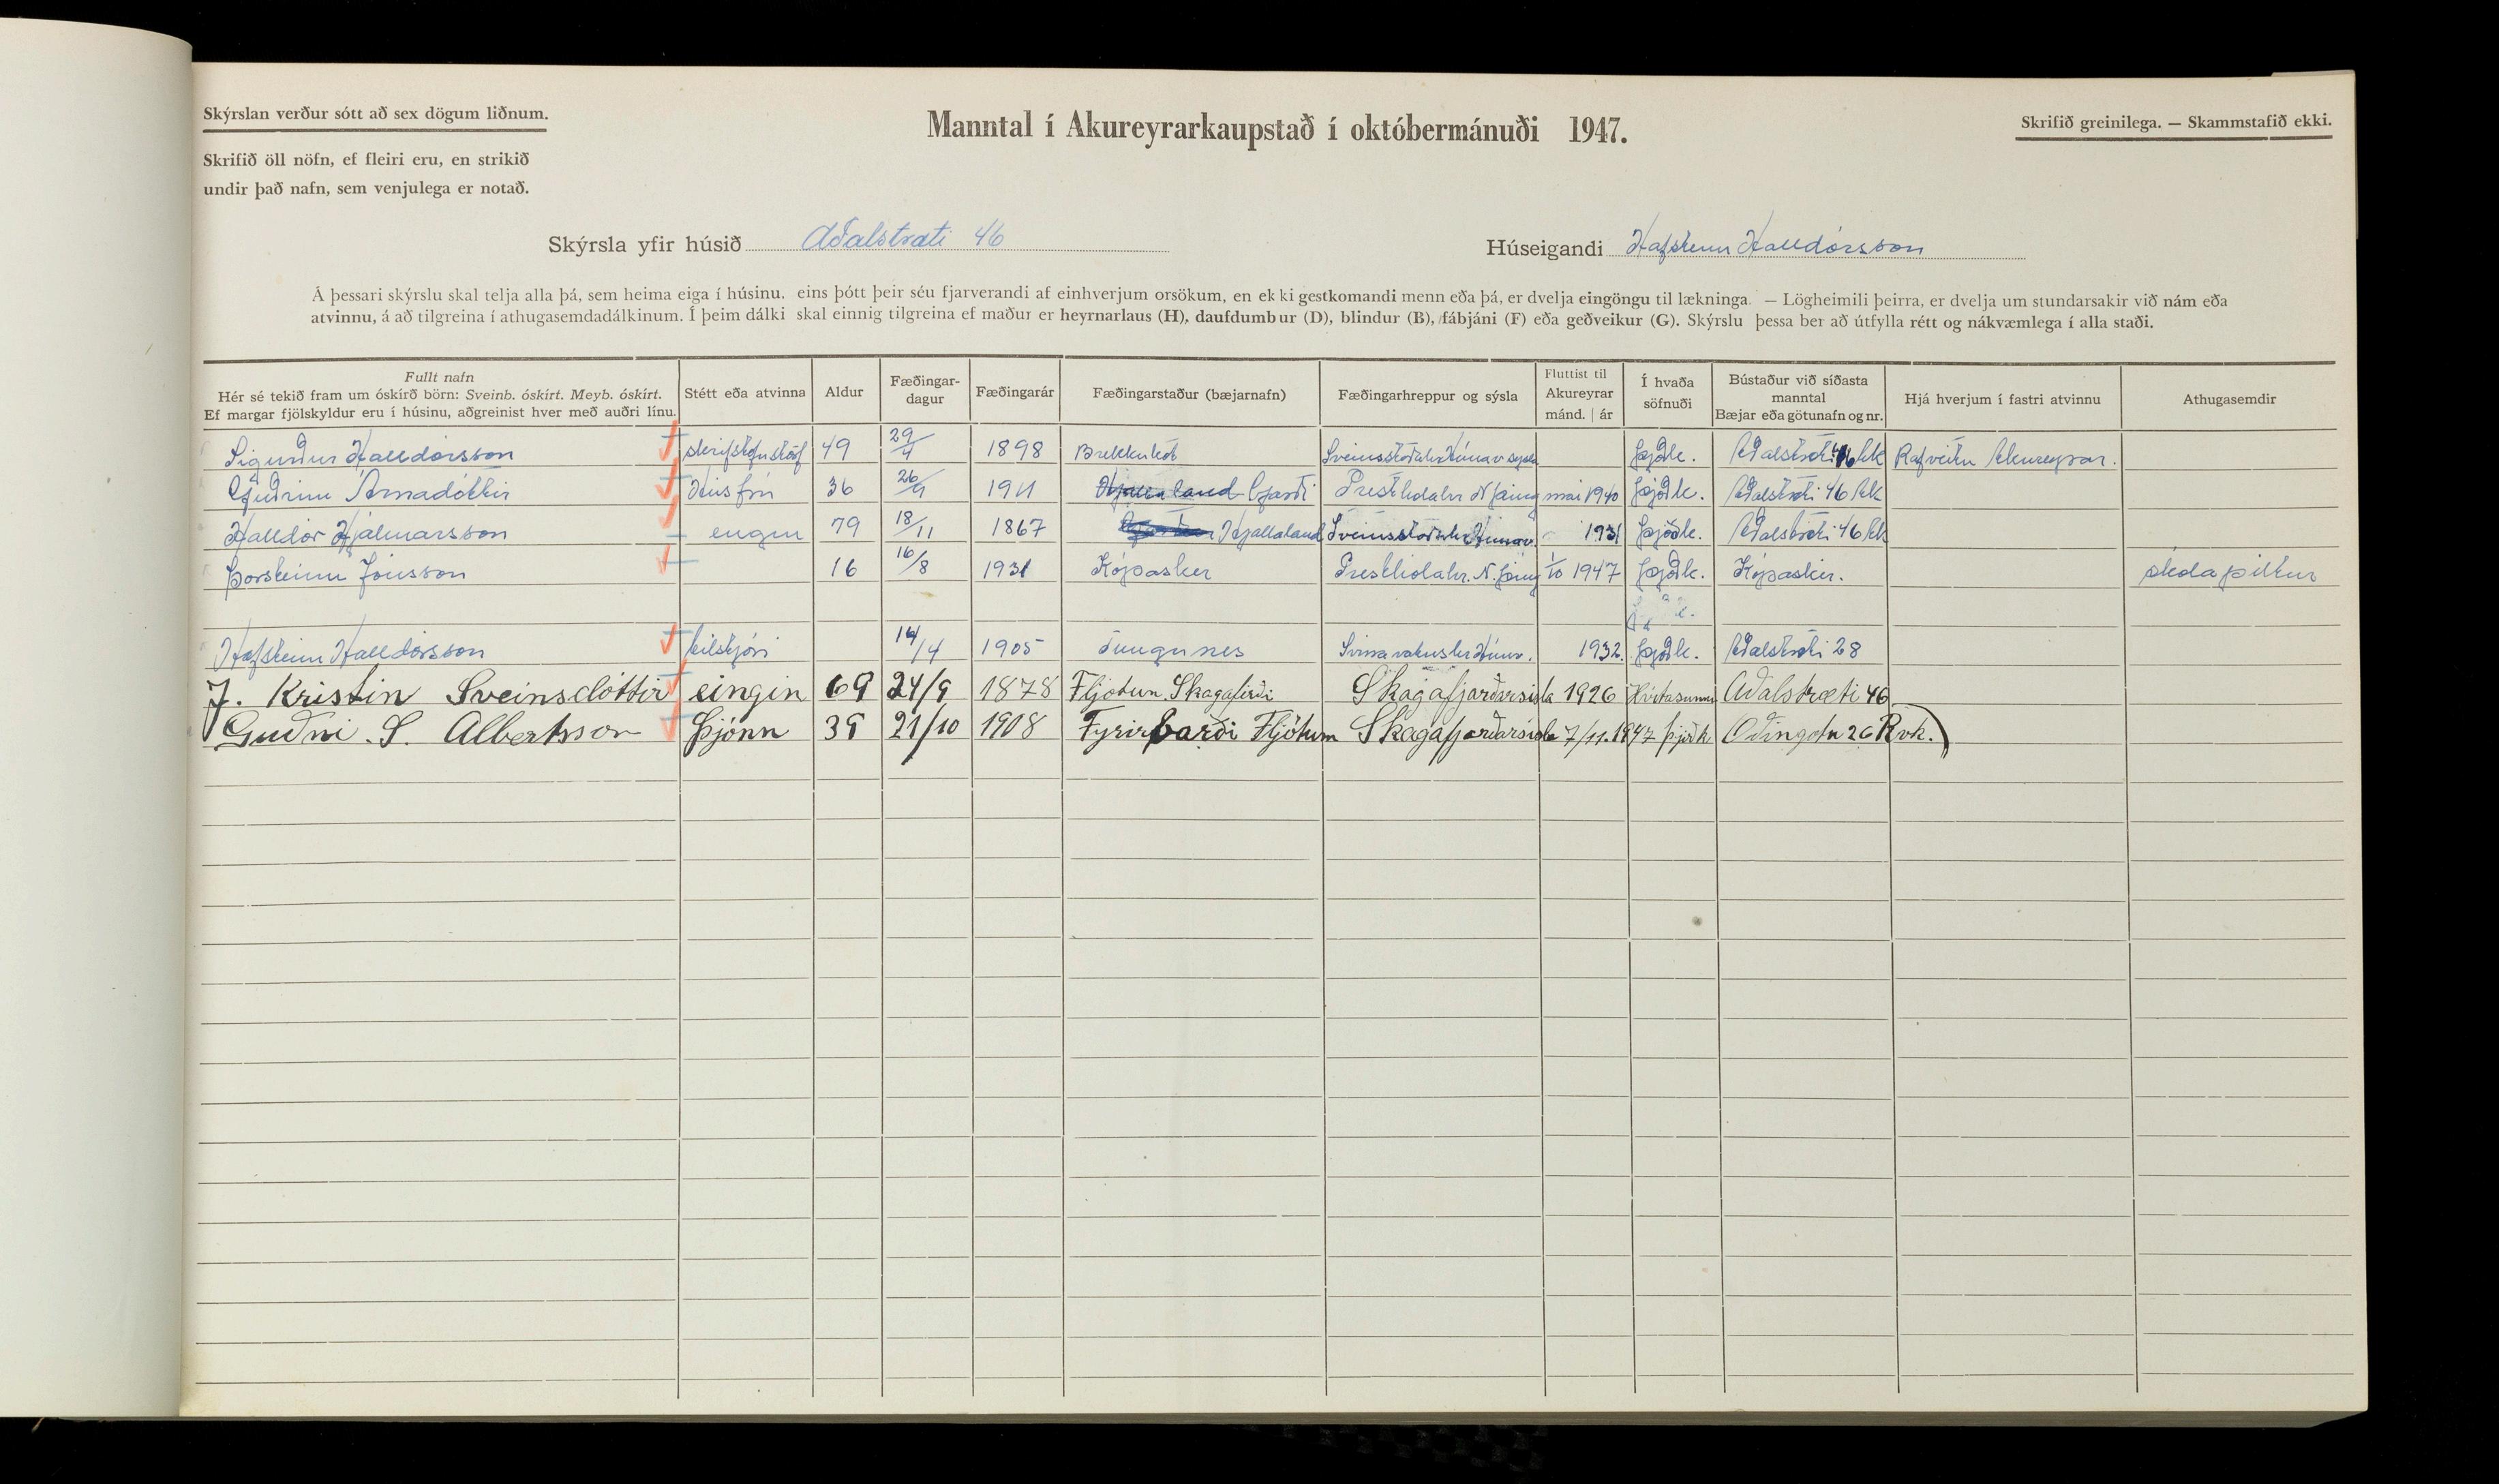 Skýrslan verður sótt að sex dögum liðnum.
Manntal í Akureyrarkaupstað í októbermánuði 1947.
Skrifið greinilega. — Skammstafið ekki.
Skrifið öll nöfn, ef fleiri eru, en strikið
undir það nafn, sem venjulega er notað.
Skýrsla yfir húsið Aðalstræti 46
Húseigandi Hafsteinn Halldórsson
Á þessari skýrslu skal telja alla þá, sem heima eiga í húsinu, eins þótt þeir séu fjarverandi af einhverjum orsökum, en ekki gestkomandi menn eða þá, er dvelja eingöngu til lækninga. — Lögheimili þeirra, er dvelja um stundarsakir við nám eða
atvinnu, á að tilgreina í athugasemdadálkinum. Í þeim dálki skal einnig tilgreina ef maður er heyrnarlaus (H), daufdumbur (D), blindur (B), fábjáni (F) eða geðveikur (G). Skýrslu þessa ber að útfylla rétt og nákvæmlega í alla staði.
Fullt nafn
Hér sé tekið fram um óskírð börn: Sveinb. óskírt. Meyb. óskírt.
Ef margar fjölskyldur eru í húsinu, aðgreinist hver með auðri línu.
Stétt eða atvinna
Aldur
Fæðingar-
dagur
Fæðingarár
Fæðingarstaður (bæjarnafn)
Fæðingarhreppur og sýsla
Fluttist til
Akureyrar
mánd. | ár
Í hvaða
söfnuði
Bústaður við síðasta
manntal
Bæjar eða götunafn og nr.
Hjá hverjum í fastri atvinnu
Athugasemdir
Sigurður Halldórsson 49 29/4 1898 Brekkukot þjóðk. Aðalstræti 46 Ak Rafveitu Akureyrar.
Guðrún Árnadóttir Húsfrú 36 26/9 1911 Hjallaland Garði Prestholahr N þing maí 1940 þjóðk. Aðalstræti 46 Ak
Halldór Hjálmarsson engin 79 18/11 1867 Hjallaland Sveinsstaðahr Húnav. 1931 þjóðk. Aðalstræti 46 Ak
Þorsteinn Jónsson 16 16/8 1931 Kópasker Prestholahr. N. þing 1/10 1947 þjóðk. Kópasker. skólapiltur
Hafsteinn Halldórsson bílstjóri 14/4 1905 Tungunes Svínavatnshr Húnv. 1932. þjóðk. Aðalstræti 28
J. Kristín Sveinsdóttir eingin 69 24/9 1878 Fljótun Skagafirði Skagafjarðarsisla 1926 Aðalstræti 46
Guðni S. Albertsson Þjónn 39 21/10 1908 Fyrirbarði Fljótum Skagafjarðarsisla 7/11.1947 þjóðk Oðingötu 26 Rvk.)